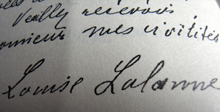 Veuillez recevoir
Monsieur mes civilités
Louise Lalanne